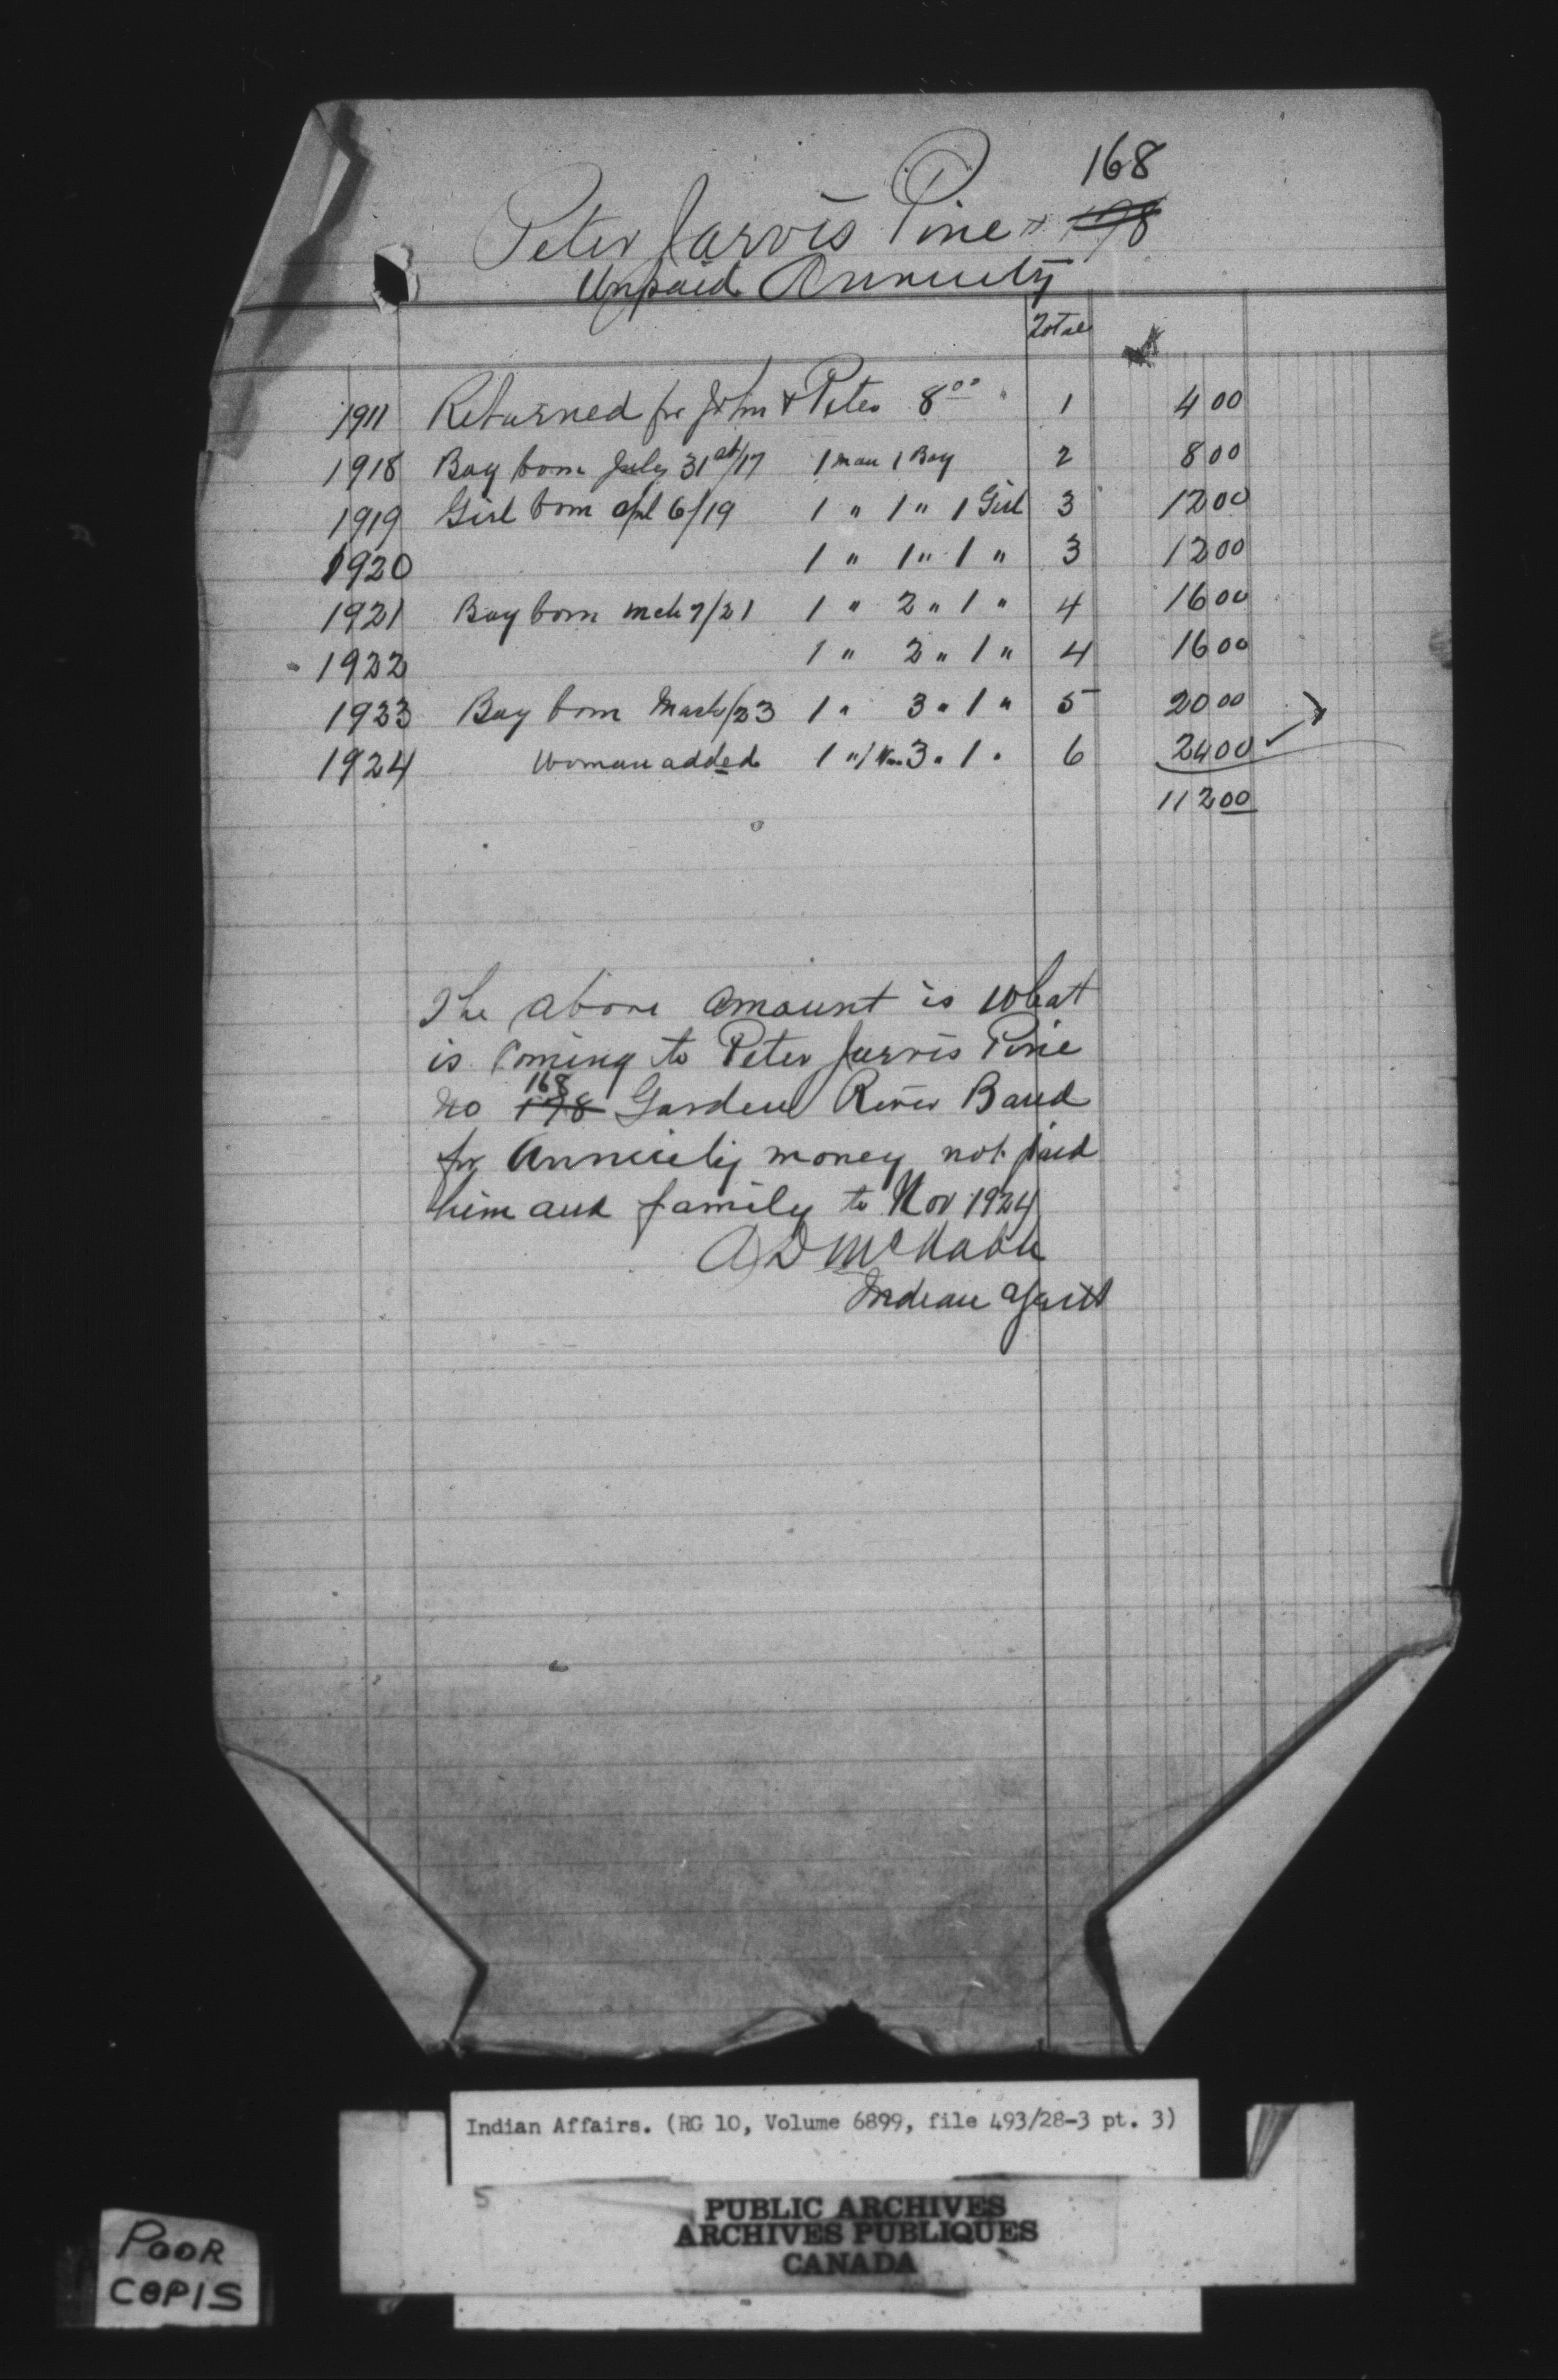 168
Peter Jarvis Pine 178
Unpaid Annuity
Total
1911 Returned for John & Peter 8 00 1 4 00
1918 Boy born July 31st/17 1 man 1 Boy 2 8 00
1919 Girl born Apl 6/19 1 " 1 " 1 Girl 3 12 00
1920 1 " 1 " 1 " 3 12 00
1921 Boy born Mch 7/21 1 " 2 " 1 " 4 16 00
1922 1 " 2 " 1 " 4 16 00
1923 Boy born March/23 1 " 3 " 1 " 5 20 00
1924 Woman added 1 " 1 Wn 3 " 1 " 6 24 00
112 00
The above amount is what
is coming to Peter Jarvis Pine
168
No 178 Garden River Band
for Annuity money not paid
him and family to Nov 1924
A D McNabb
Indian Agent
Indian Affairs. (RG 10, Volume 6899, file 493/28-3 pt. 3)
5
PUBLIC ARCHIVES
ARCHIVES PUBLIQUES
CANADA
POOR
COPIS